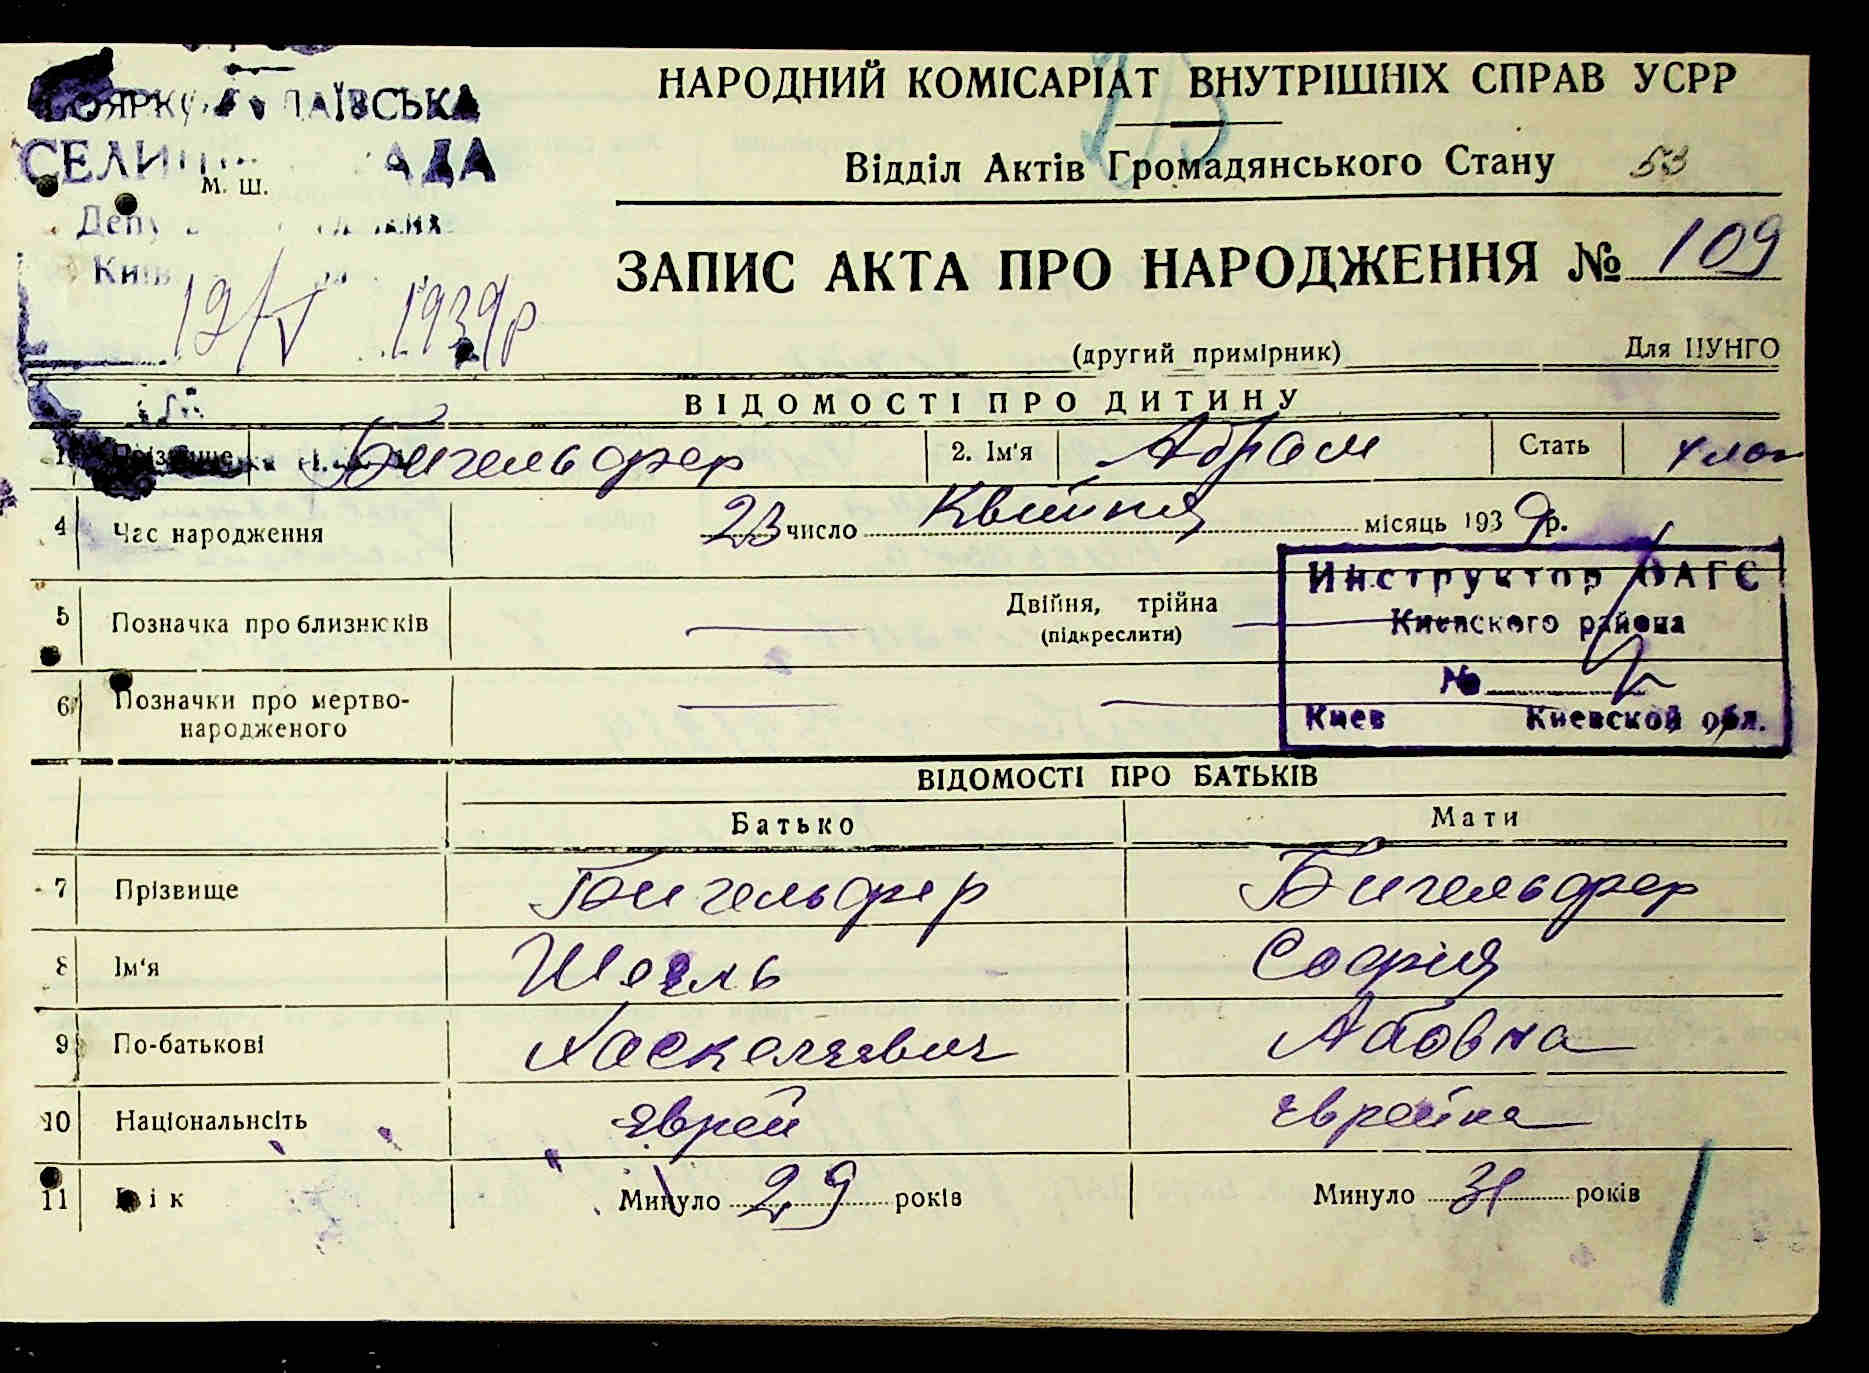 НАРОДНИЙ КОМІСАРІАТ ВНУТРІШНІХ СПРАВ УСРР
Відділ Актів Громадянського Стану 53
М. Ш.
ЗАПИС АКТА ПРО НАРОДЖЕННЯ № 109
12/V 1939р
(другий примірник) Для ЦУНГО
ВІДОМОСТІ ПРО ДИТИНУ
1 Прізвище Бигельфер 2. Ім'я Абрам Стать хлоп
4 Час народження 23 число Квітня місяць 1939 р.
5 Позначка про близнюків Двійня, трійна
(підкреслити)
Инструктор ОАГС
Киевского района
№
Киев Киевской обл.
6 Позначки про мертво-
народженого
ВІДОМОСТІ ПРО БАТЬКІВ
Батько Мати
7 Прізвище Бигельфер Бигельфер
8 Ім'я Шоель Софія
9 По-батькові Хаскелевич Абовна
10 Національнсіть Єврей Єврейка
11 Вік Минуло 29 років Минуло 31 років